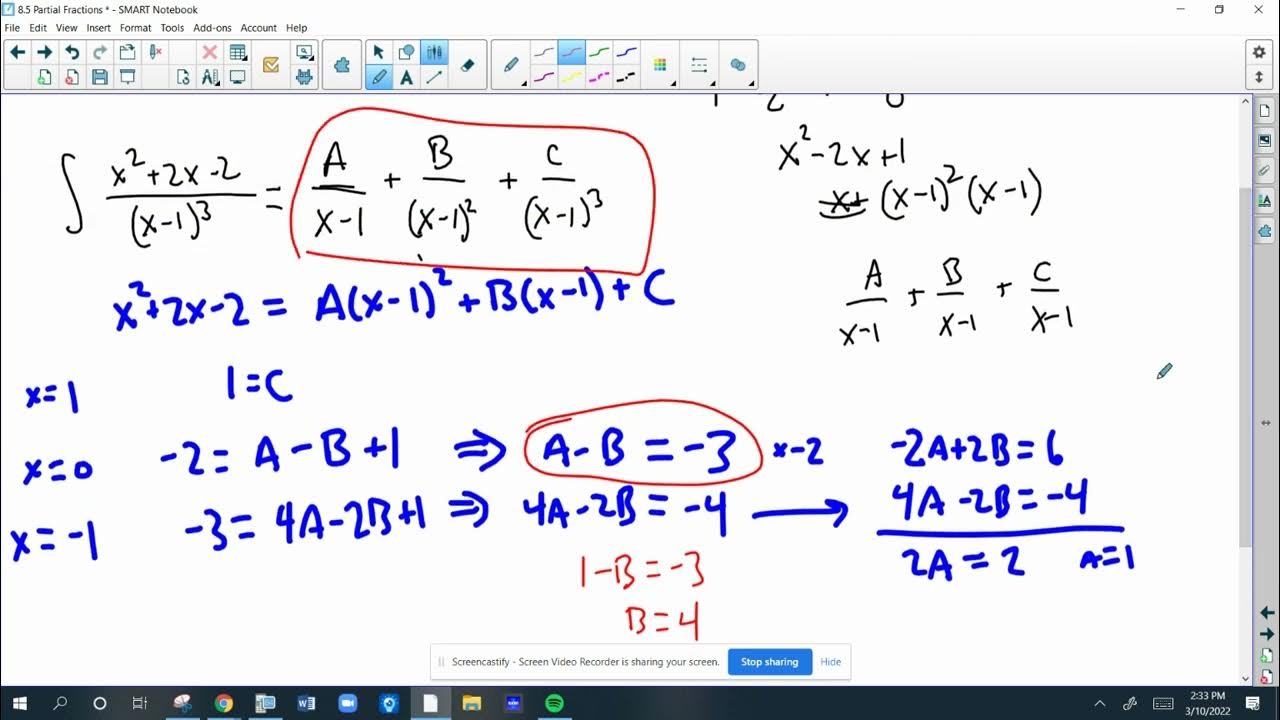 8.5 Partial Fractions * - SMART Notebook
File Edit View Insert Format Tools Add-ons Account Help
∫ (x²+2x-2)/(x-1)³ = A/(x-1) + B/(x-1)² + C/(x-1)³
x²-2x+1
(x-1)²(x-1)
x²+2x-2 = A(x-1)²+B(x-1)+C
A/(x-1) + B/(x-1) + C/(x-1)
x=1 1=C
x=0 -2=A-B+1 ⇒ A-B=-3 x-2 -2A+2B=6
x=-1 -3=4A-2B+1 ⇒ 4A-2B=-4 → 4A-2B=-4
1-B=-3 2A=2 A=1
B=4
Screencastify - Screen Video Recorder is sharing your screen. Stop sharing Hide
2:33 PM
3/10/2022